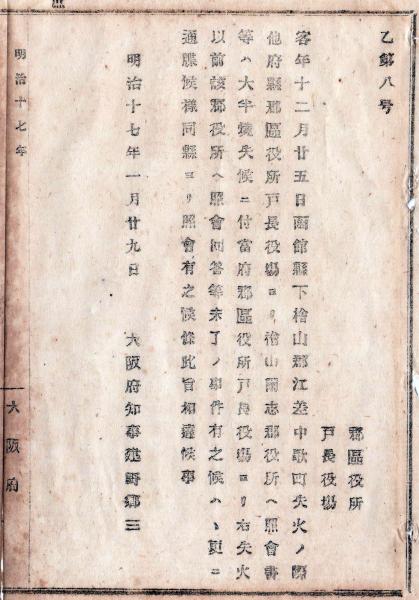 乙第八号
郡區役所
戸長役場
客年十二月廿五日函館縣下檜山郡江差中歌町失火ノ際
他府縣郡區役所戸長役場ヨリ檜山爾志郡役所ヘ照會書
等ハ大半燒失候ニ付當府郡區役所戸長役場ヨリ右失火
以前該郡役所ヘ照會回答等未了ノ事件有之候ハヽ更ニ
通牒候樣同縣ヨリ照會有之候條此旨相達候事
明治十七年一月廿九日　大阪府知事建野郷三
明治十七年
大阪府